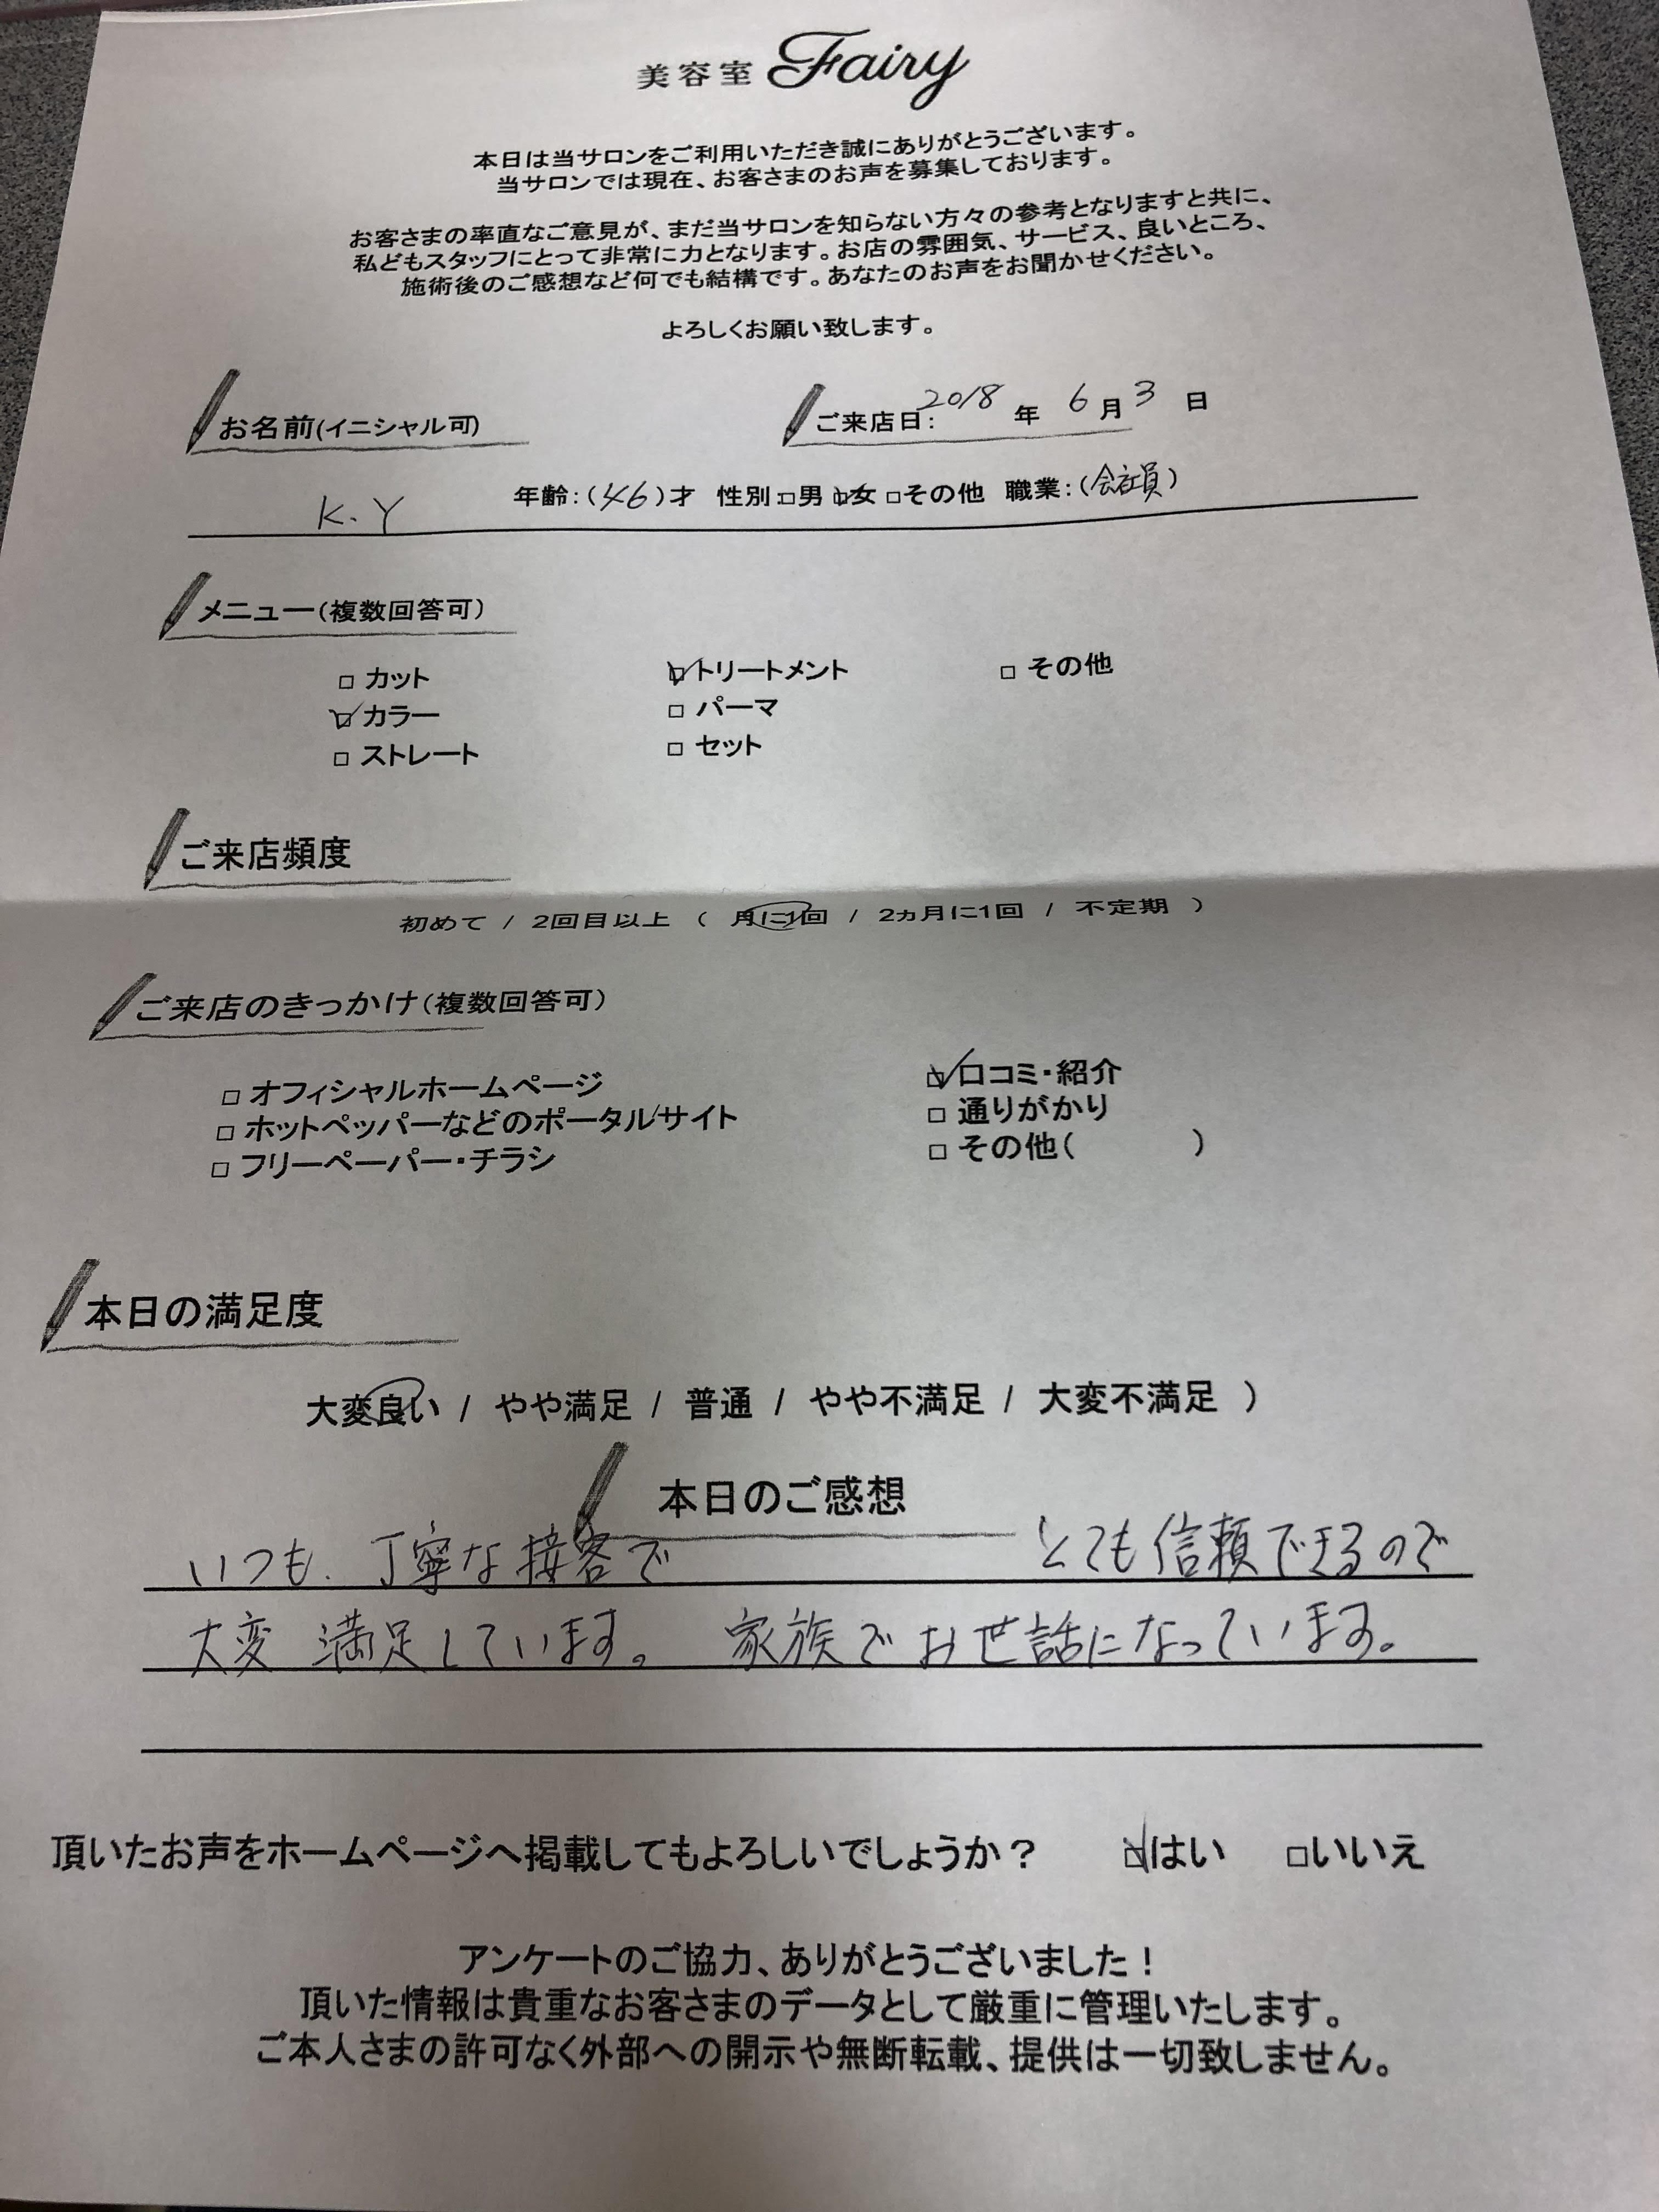 美容室 Fairy
本日は当サロンをご利用いただき誠にありがとうございます。
当サロンでは現在、お客さまのお声を募集しております。
お客さまの率直なご意見が、まだ当サロンを知らない方々の参考となりますと共に、
私どもスタッフにとって非常に力となります。お店の雰囲気、サービス、良いところ、
施術後のご感想など何でも結構です。あなたのお声をお聞かせください。
よろしくお願い致します。
お名前(イニシャル可) ご来店日: 2018 年 6 月 3 日
K.Y 年齢:(46)才 性別:□男 ☑女 □その他 職業:(会社員)
メニュー(複数回答可)
□ カット ☑トリートメント □ その他
☑カラー □ パーマ
□ ストレート □ セット
ご来店頻度
初めて / 2回目以上 ( 月に1回 / 2ヵ月に1回 / 不定期 )
ご来店のきっかけ(複数回答可)
□ オフィシャルホームページ ☑口コミ・紹介
□ ホットペッパーなどのポータルサイト □ 通りがかり
□ フリーペーパー・チラシ □ その他( )
本日の満足度
大変良い / やや満足 / 普通 / やや不満足 / 大変不満足 )
本日のご感想
いつも、丁寧な接客で とても信頼できるので
大変 満足しています。 家族でお世話になっています。
頂いたお声をホームページへ掲載してもよろしいでしょうか? ☑はい □いいえ
アンケートのご協力、ありがとうございました!
頂いた情報は貴重なお客さまのデータとして厳重に管理いたします。
ご本人さまの許可なく外部への開示や無断転載、提供は一切致しません。